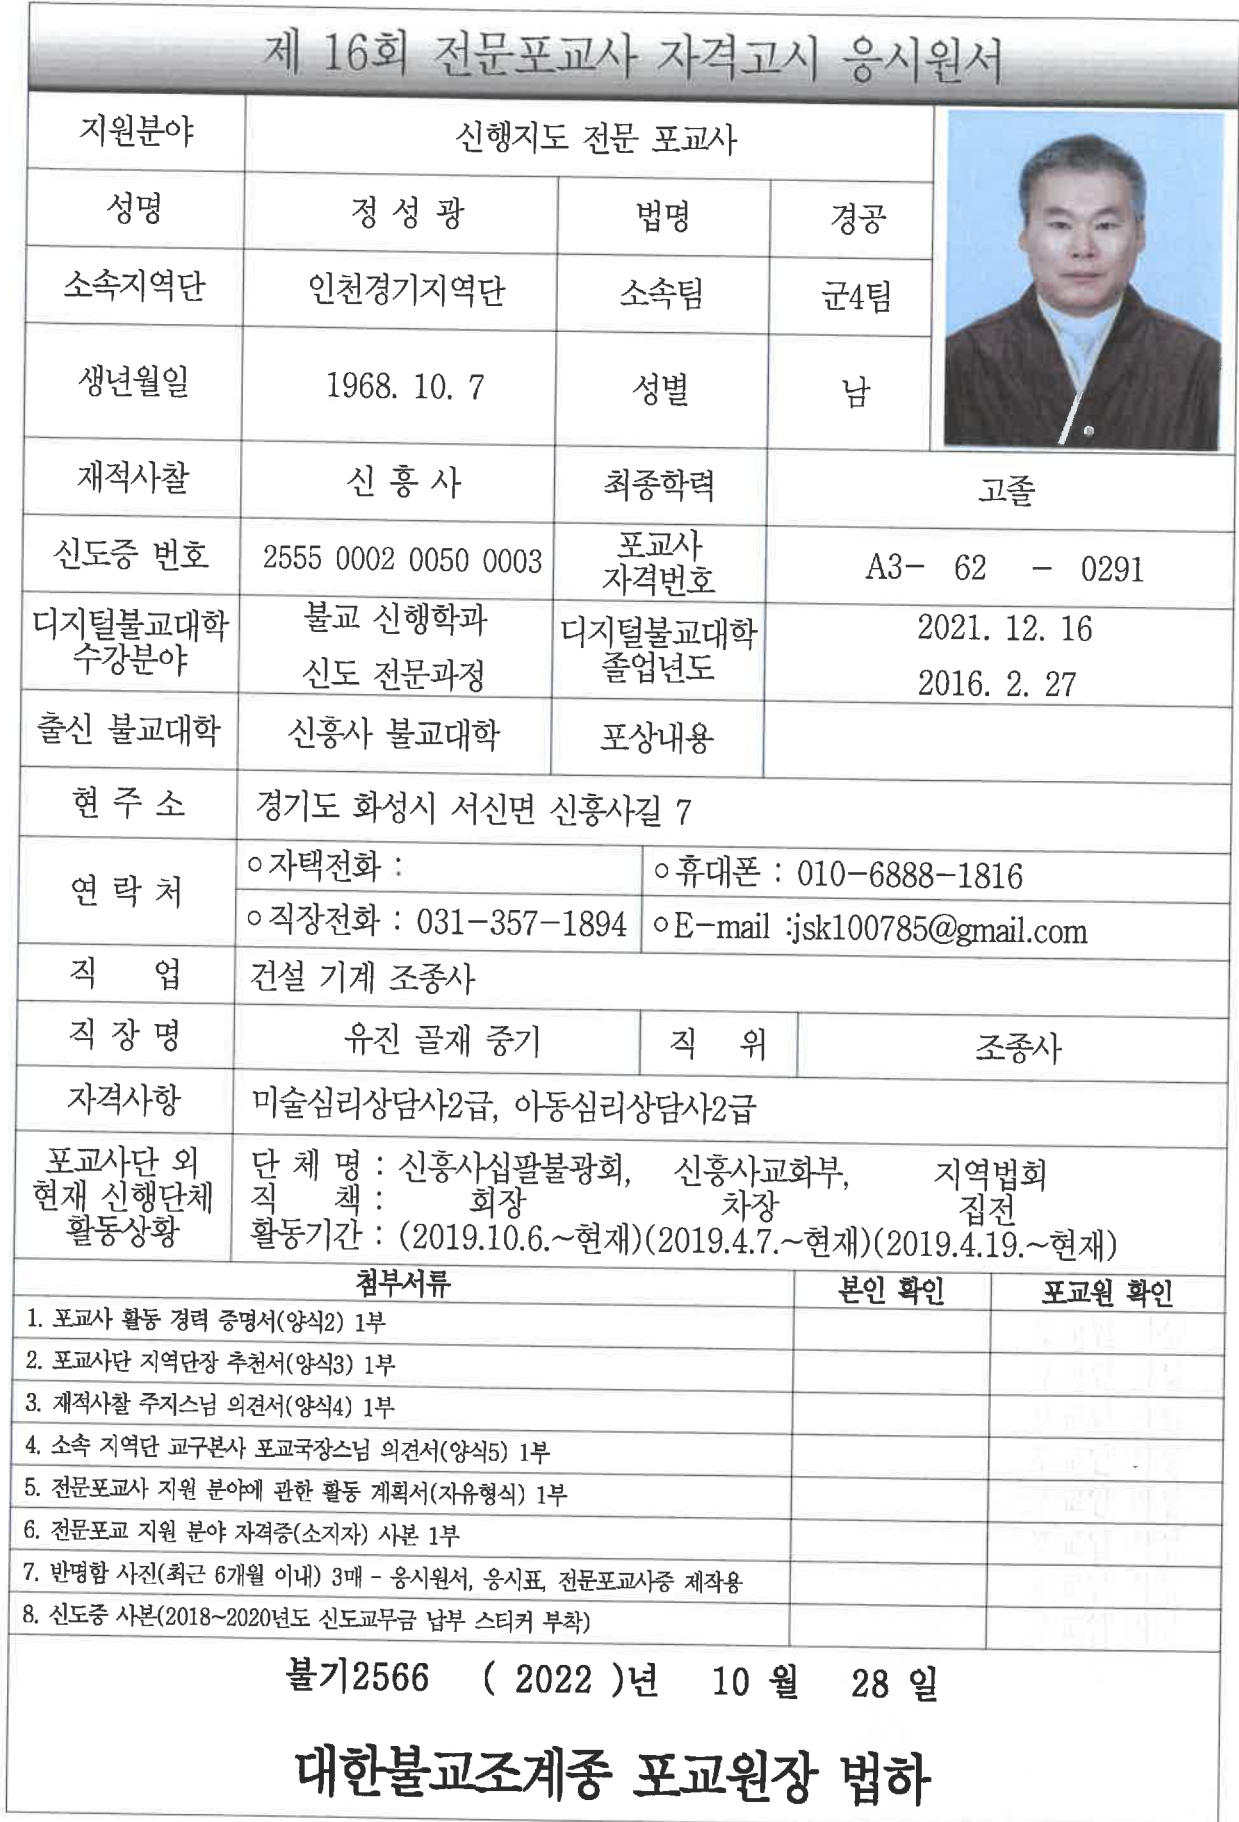 제 16회 전문포교사 자격고시 응시원서
지원분야 신행지도 전문 포교사
성명 정 성 광 법명 경공
소속지역단 인천경기지역단 소속팀 군4팀
생년월일 1968. 10. 7 성별 남
재적사찰 신 흥 사 최종학력 고졸
신도증 번호 2555 0002 0050 0003 포교사 자격번호 A3- 62 - 0291
디지털불교대학 수강분야 불교 신행학과 신도 전문과정 디지털불교대학 졸업년도 2021. 12. 16 2016. 2. 27
출신 불교대학 신흥사 불교대학 포상내용
현 주 소 경기도 화성시 서신면 신흥사길 7
연 락 처 ○자택전화 : ○휴대폰 : 010-6888-1816
○직장전화 : 031-357-1894 ○E-mail :jsk100785@gmail.com
직 업 건설 기계 조종사
직 장 명 유진 골재 중기 직 위 조종사
자격사항 미술심리상담사2급, 아동심리상담사2급
포교사단 외 현재 신행단체 활동상황
단 체 명 : 신흥사십팔불광회, 신흥사교화부, 지역법회
직 책 : 회장 차장 집전
활동기간 : (2019.10.6.~현재)(2019.4.7.~현재)(2019.4.19.~현재)
첨부서류 본인 확인 포교원 확인
1. 포교사 활동 경력 증명서(양식2) 1부
2. 포교사단 지역단장 추천서(양식3) 1부
3. 재적사찰 주지스님 의견서(양식4) 1부
4. 소속 지역단 교구본사 포교국장스님 의견서(양식5) 1부
5. 전문포교사 지원 분야에 관한 활동 계획서(자유형식) 1부
6. 전문포교 지원 분야 자격증(소지자) 사본 1부
7. 반명함 사진(최근 6개월 이내) 3매 - 응시원서, 응시표, 전문포교사증 제작용
8. 신도증 사본(2018~2020년도 신도교무금 납부 스티커 부착)
불기2566 ( 2022 )년 10 월 28 일
대한불교조계종 포교원장 법하